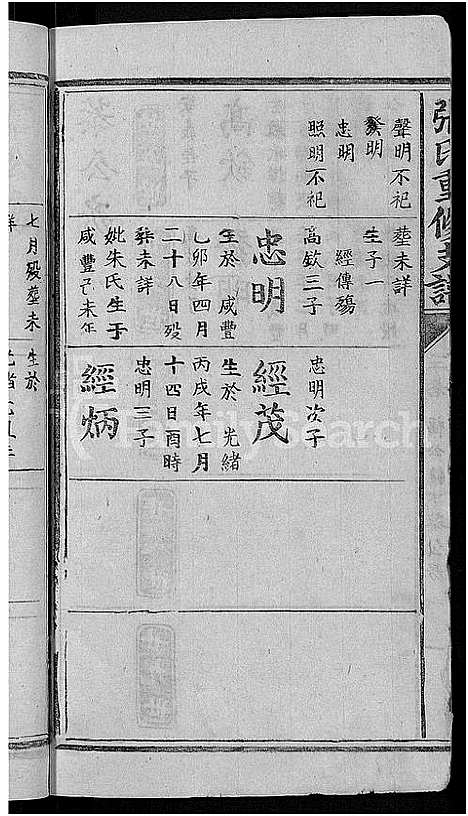 張氏重修支譜
聲明不祀
發明
忠明
照明不祀
塟未詳
生子一
經傳殤
高欽三子
忠明
生於咸豐
乙卯年四月
二十八日歿
塟未詳
妣朱氏生于
咸豐己未年
忠明次子
經茂
生於光緒
丙戌年七月
十四日酉時
忠明三子
經炳
七月歿塟未
詳
生於
FamilySearch